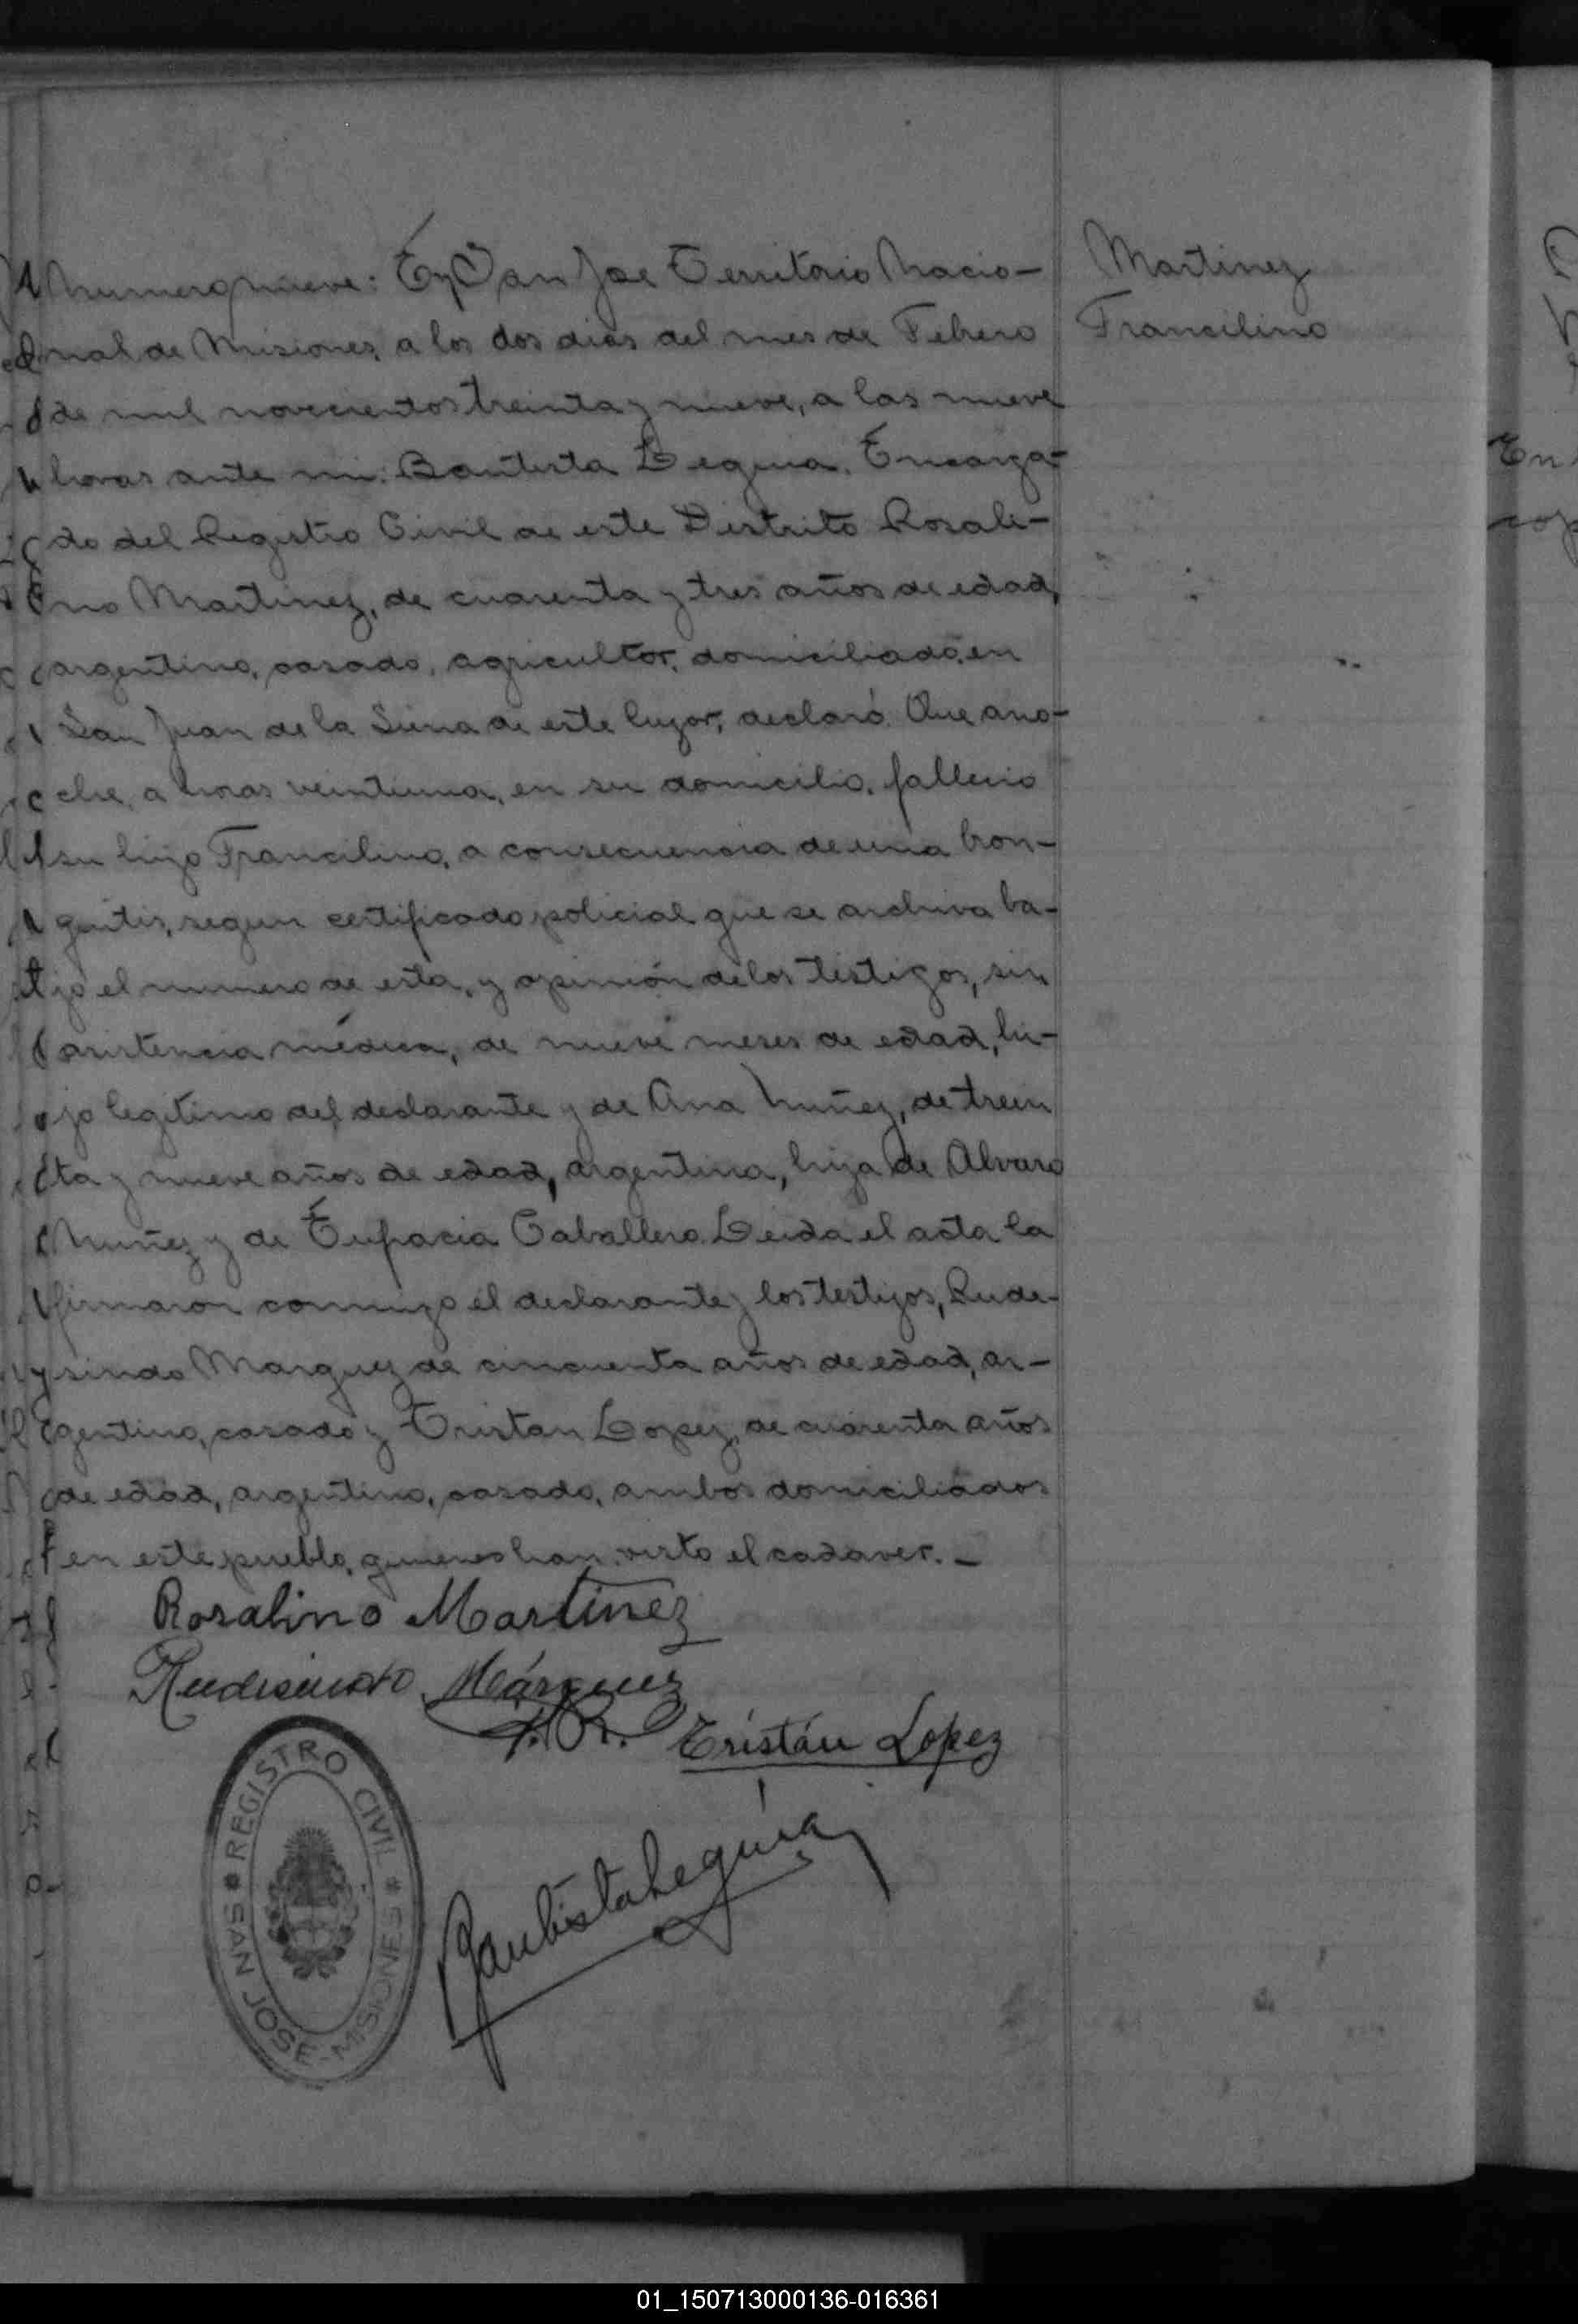 Numero nueve: En San Jose Territorio Nacio-
nal de Misiones, a los dos dias del mes de Febrero
de mil novecientos treinta y nueve, a las nueve
horas ante mi: Bautista Leguia. Encarga-
do del Registro Civil de este Distrito Rosali-
no Martinez, de cuarenta y tres años de edad,
argentino, casado, agricultor, domiciliado, en
San Juan de la Sierra de este lugar, declaró: Que ano-
che, a horas veintiuna, en su domicilio, fallecio
su hijo Francilino, a consecuencia de una bron-
quitis, segun certificado policial que se archiva ba-
jo el numero de esta, y opinión de los testigos, sin
asistencia médica, de nueve meses de edad, hi-
jo legitimo del declarante y de Ana Nuñez, de trein
ta y nueve años de edad, argentina, hija de Alvaro
Nuñez y de Eufracia Caballero. Leida el acta la
firmaron conmigo el declarante y los testigos, Rude-
sindo Marquez de cincuenta años de edad, ar-
gentino, casado y Tristan Lopez, de cuarenta años
de edad, argentino, casado, ambos domiciliados
en este pueblo, quienes han visto el cadaver. —
Martinez
Francilino
Rosalino Martinez
Rudesindo Márquez
Tristán Lopez
Bautista Leguía
REGISTRO CIVIL
SAN JOSE - MISIONES
En
01_150713000136-016361